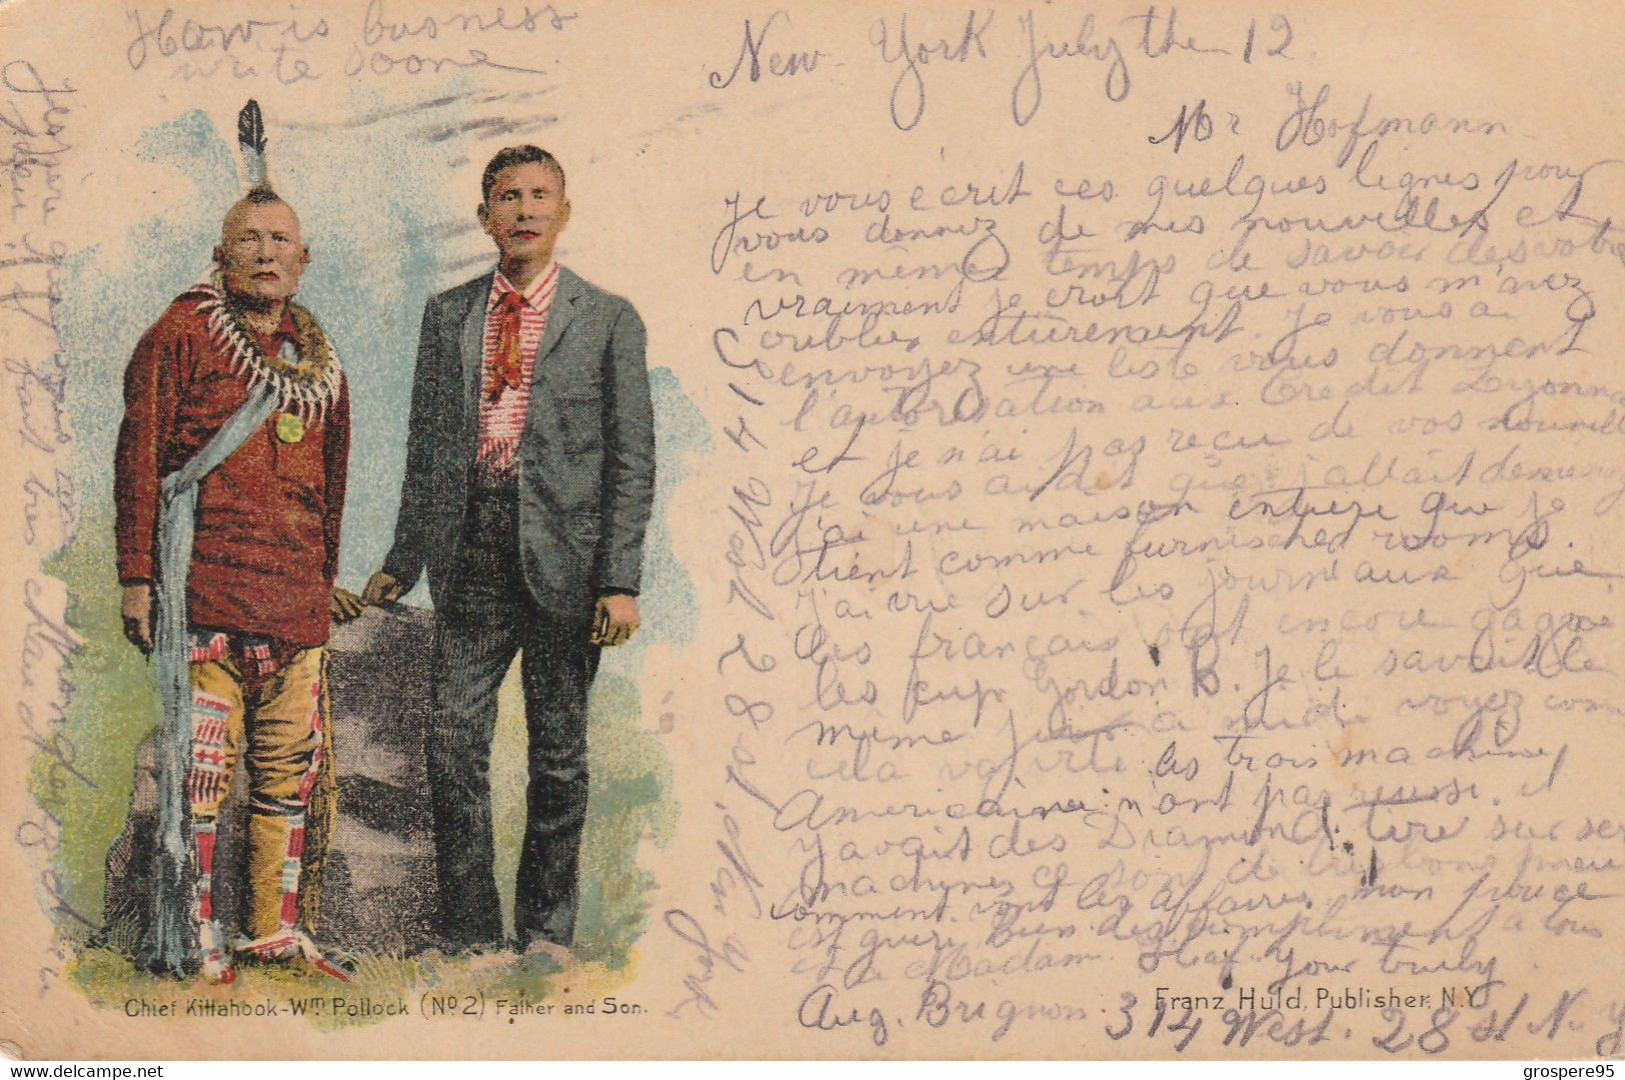 How is busness
write soone
New York July the 12
Mr Hofmann
Je vous écrit ces quelques lignes pour
vous donnez de mes nouvelles et
en même temps de savoir des votre
vraiment je croit que vous m'avez
oublier entièrement. Je vous ai
envoyez une liste vous donnent
l'autorisation aux Credit Lyonnai
et je n'ai pas recu de vos nouvelle
Je vous ai dit que j'allait
j'ai une maison entiere que je
tient comme furnisched rooms.
J'ai vue sur les journaux que
les français ont encore gagné
les cup Gordon B. Je le savait le
même jour a midi voyez com
cela va vite les trois machines
Americaine n'ont pas reussi. il
y avait des Diamond tire sur ses
machynes ce sont de tres bons pneu
comment vont les affaires. mon pouce
est gueri. Bien des compliment a tous
et a Madam Haf. Your truly
Aug. Brignon 314 West. 28 st N. Y
314 West 28 st. New York
J'espère que vous
Chief Kittahook-Wm Pollock (No 2) Father and Son.
Franz Huld, Publisher, N.Y.
www.delcampe.net
grospere95